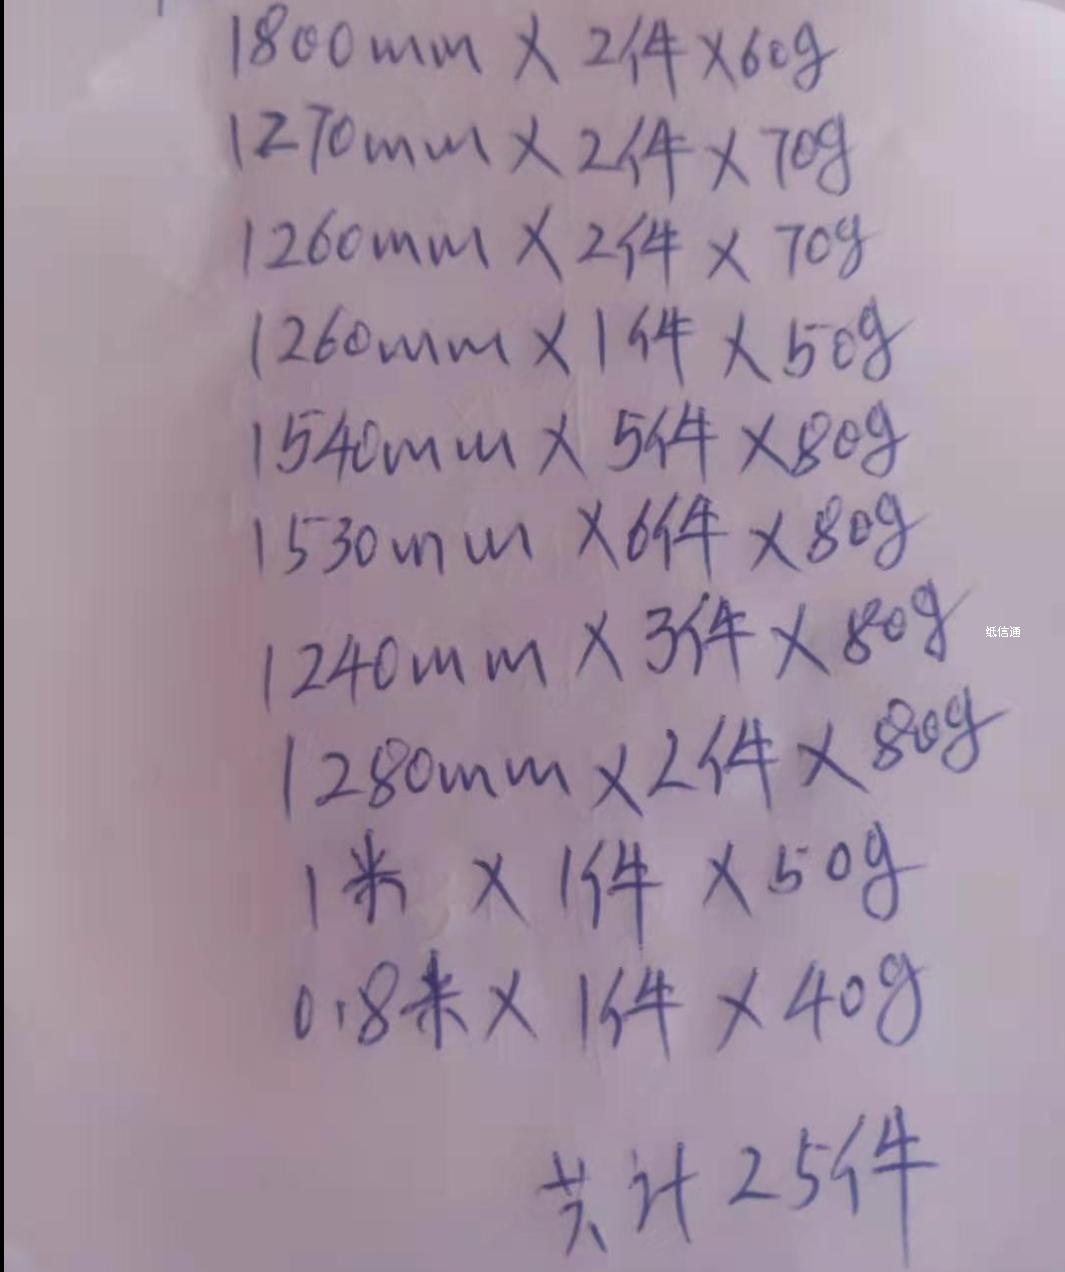 1800mm × 2件 ×60g
1270mm × 2件 × 70g
1260mm × 2件 × 70g
1260mm × 1件 × 50g
1540mm × 5件 ×80g
1530mm ×6件 ×80g
1240mm × 3件 × 80g
纸信通
1280mm ×2件 × 80g
1米 × 1件 × 50g
0.8米 × 1件 × 40g
共计 25件